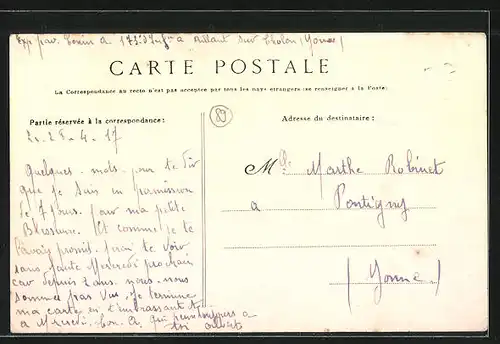 Exp par Tonin a 173e Inf a Aillant sur Tholon (Yonne)
CARTE POSTALE
La Correspondance au recto n'est pas acceptée par tous les pays étrangers (se renseigner à la Poste)
Partie réservée à la correspondance:
Adresse du destinataire:
25-4-17
89
quelques mots pour te dir
que je suis en permission
de 7 jours. pour ma petite
Blessure. Et comme je te
l'avais promit. jirai te voir
sans faute Mercredi prochain
car depuis 2 ans. nous. nous
sommes pas vus. je termine
ma carte en t'embrassant
qui pense toujours a
toi
Mlle Marthe Robinet
a Pontigny
(Yonne)